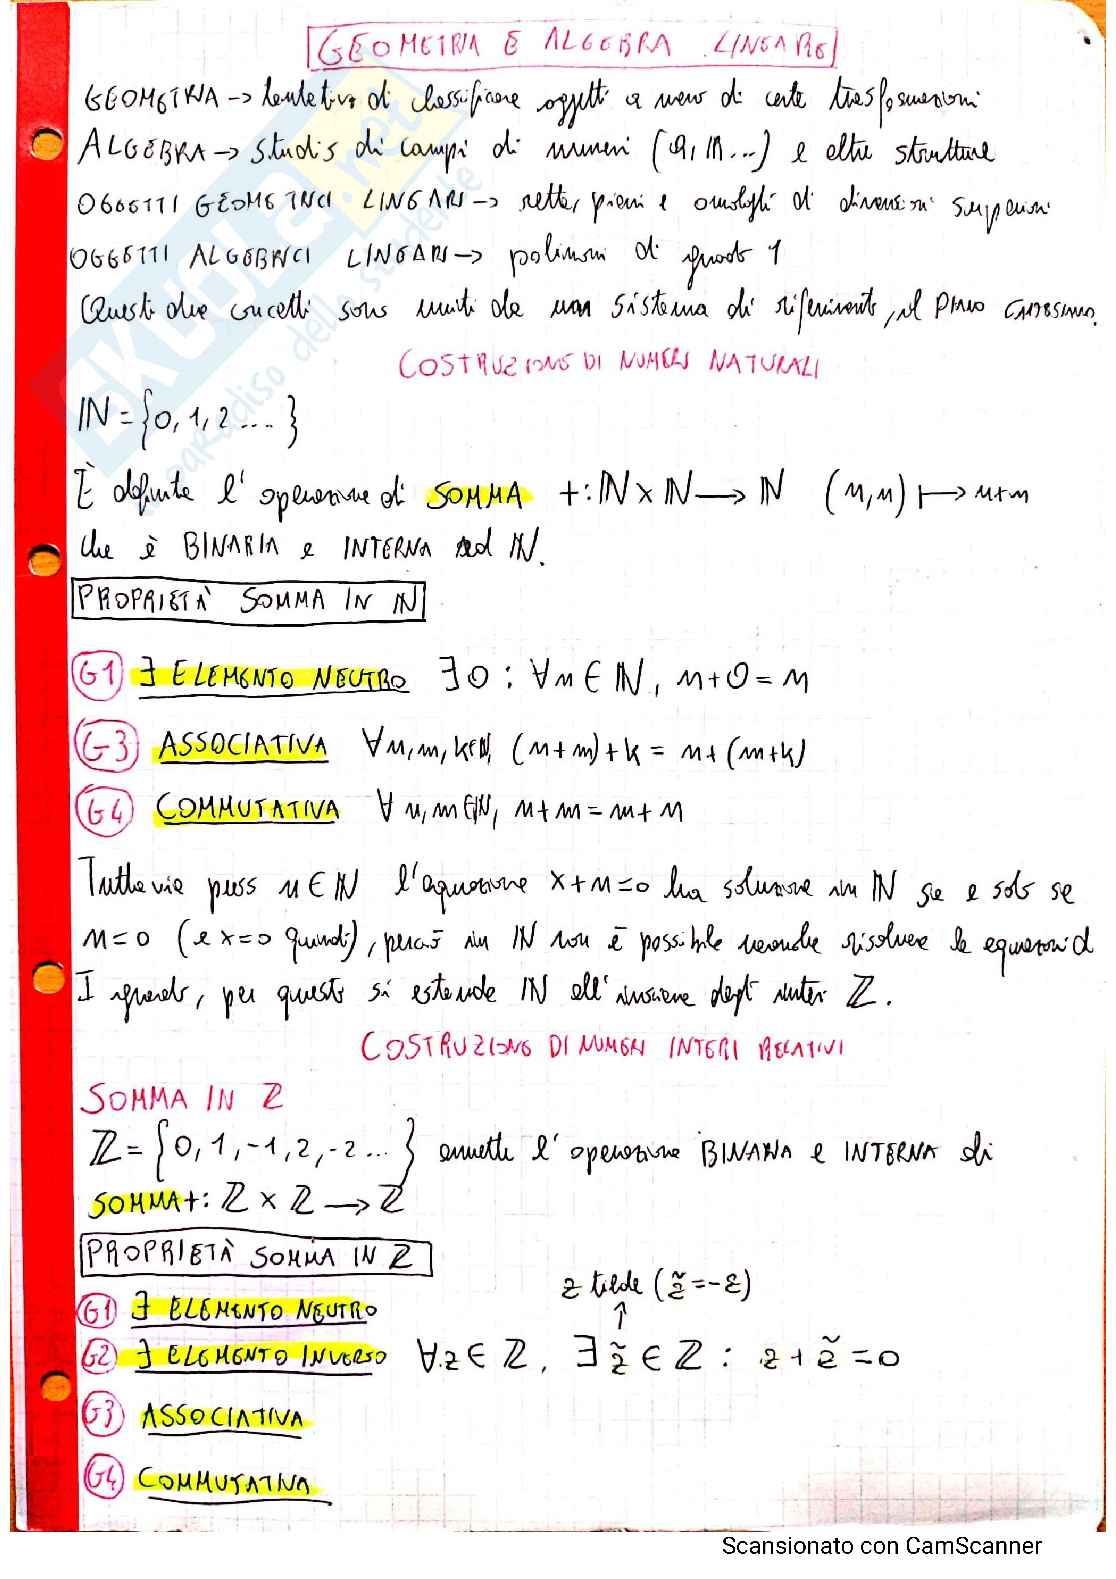 GEOMETRIA E ALGEBRA LINEARE
GEOMETRIA → tentativo di classificare oggetti a meno di certe trasformazioni
ALGEBRA → studio di campi di numeri (Q, R...) e altre strutture
OGGETTI GEOMETRICI LINEARI → rette, piani e omologhi di dimensioni superiori
OGGETTI ALGEBRICI LINEARI → polinomi di grado 1
Questi due concetti sono uniti da un sistema di riferimento, il PIANO CARTESIANO.
COSTRUZIONE DI NUMERI NATURALI
ℕ = {0, 1, 2 ....}
È definita l'operazione di SOMMA +: ℕ × ℕ → ℕ (n, m) ↦ n+m
che è BINARIA e INTERNA ad ℕ.
PROPRIETÀ SOMMA IN ℕ
G1 ∃ ELEMENTO NEUTRO ∃ 0 : ∀n ∈ ℕ, n+0 = n
G3 ASSOCIATIVA ∀n, m, k∈ℕ, (n+m)+k = n+(m+k)
G4 COMMUTATIVA ∀ n, m ∈ℕ, n+m = m+n
Tuttavia preso n ∈ ℕ l'equazione x+n=0 ha soluzione in ℕ se e solo se
n=0 (e x=0 quindi), perciò in ℕ non è possibile neanche risolvere le equazioni di
I grado, per questo si estende ℕ all'insieme degli interi ℤ.
COSTRUZIONE DI NUMERI INTERI RELATIVI
SOMMA IN ℤ
ℤ = {0, 1, -1, 2, -2 ...} ammette l'operazione BINARIA e INTERNA di
SOMMA +: ℤ × ℤ → ℤ
PROPRIETÀ SOMMA IN ℤ
z tilde (z̃ = -z)
↑
G1 ∃ ELEMENTO NEUTRO
G2 ∃ ELEMENTO INVERSO ∀z ∈ ℤ, ∃ z̃ ∈ ℤ : z + z̃ = 0
G3 ASSOCIATIVA
G4 COMMUTATIVA
SKUOLA.net
il paradiso dello studente
Scansionato con CamScanner